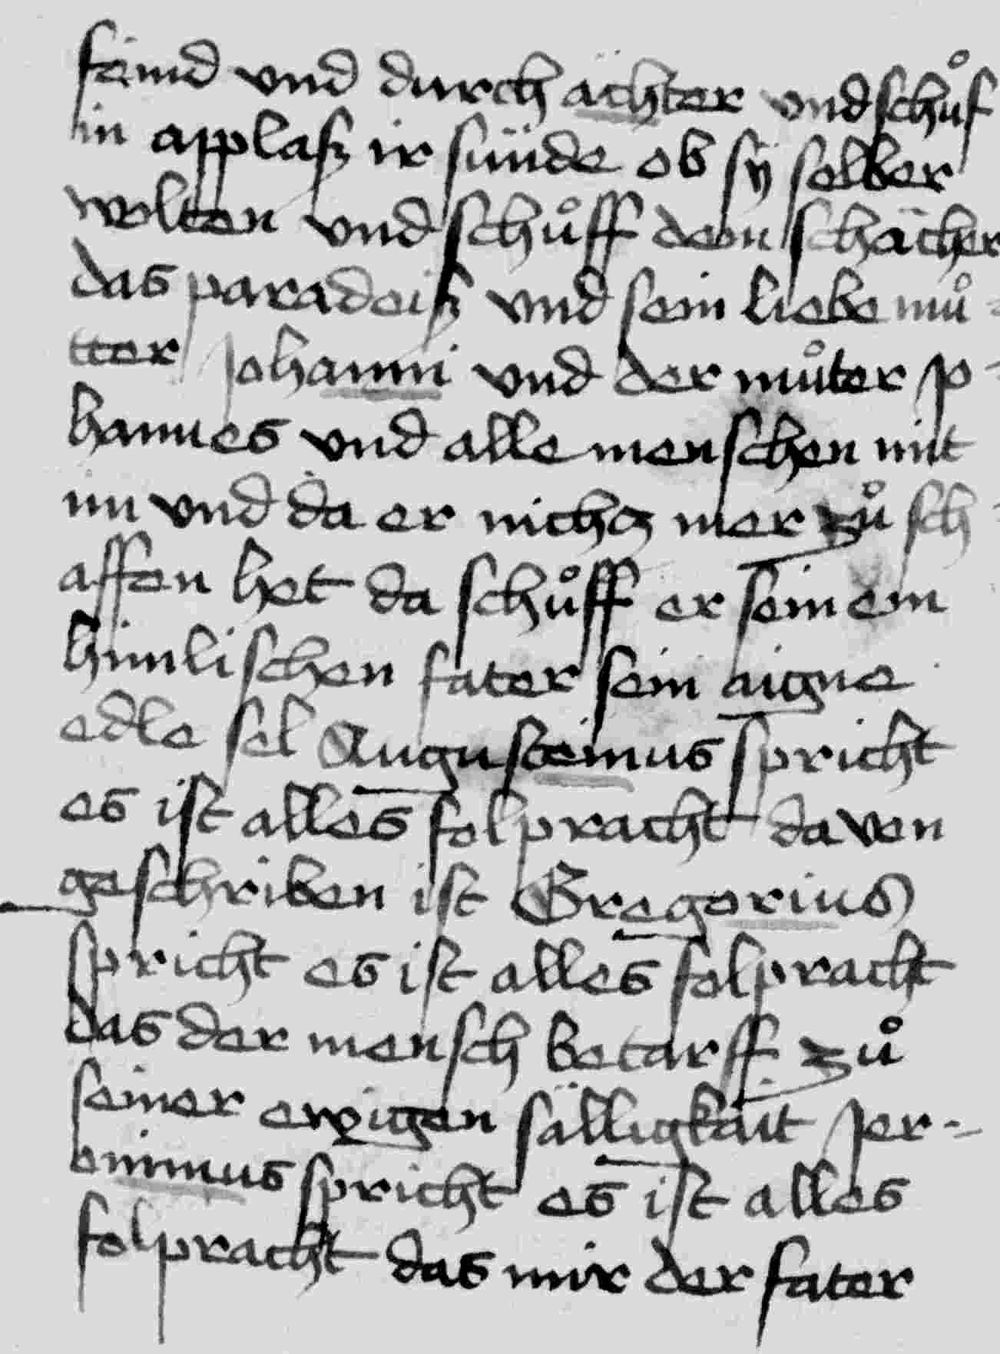 feind vnd durch ächter vnd schůf
in applasz ir sünde ob sÿ selber
wolten vnd schůff dem schächer
das paradeisz vnd sein liebe mů-
tter Johanni vnd der můter jo-
hannes vnd alle menschen mit
im vnd da er nichcz mer zů sch-
affen het da schůff er seinem
himlischen fater sein aigne
edle sel Augusteinus spricht
es ist alles folpracht da von
geschriben ist Gregorius
spricht es ist alles folpracht
das der mensch betarff zů
seiner ewigen sälligkäit Jer-
onimus spricht es ist alles
folpracht das mir der fater